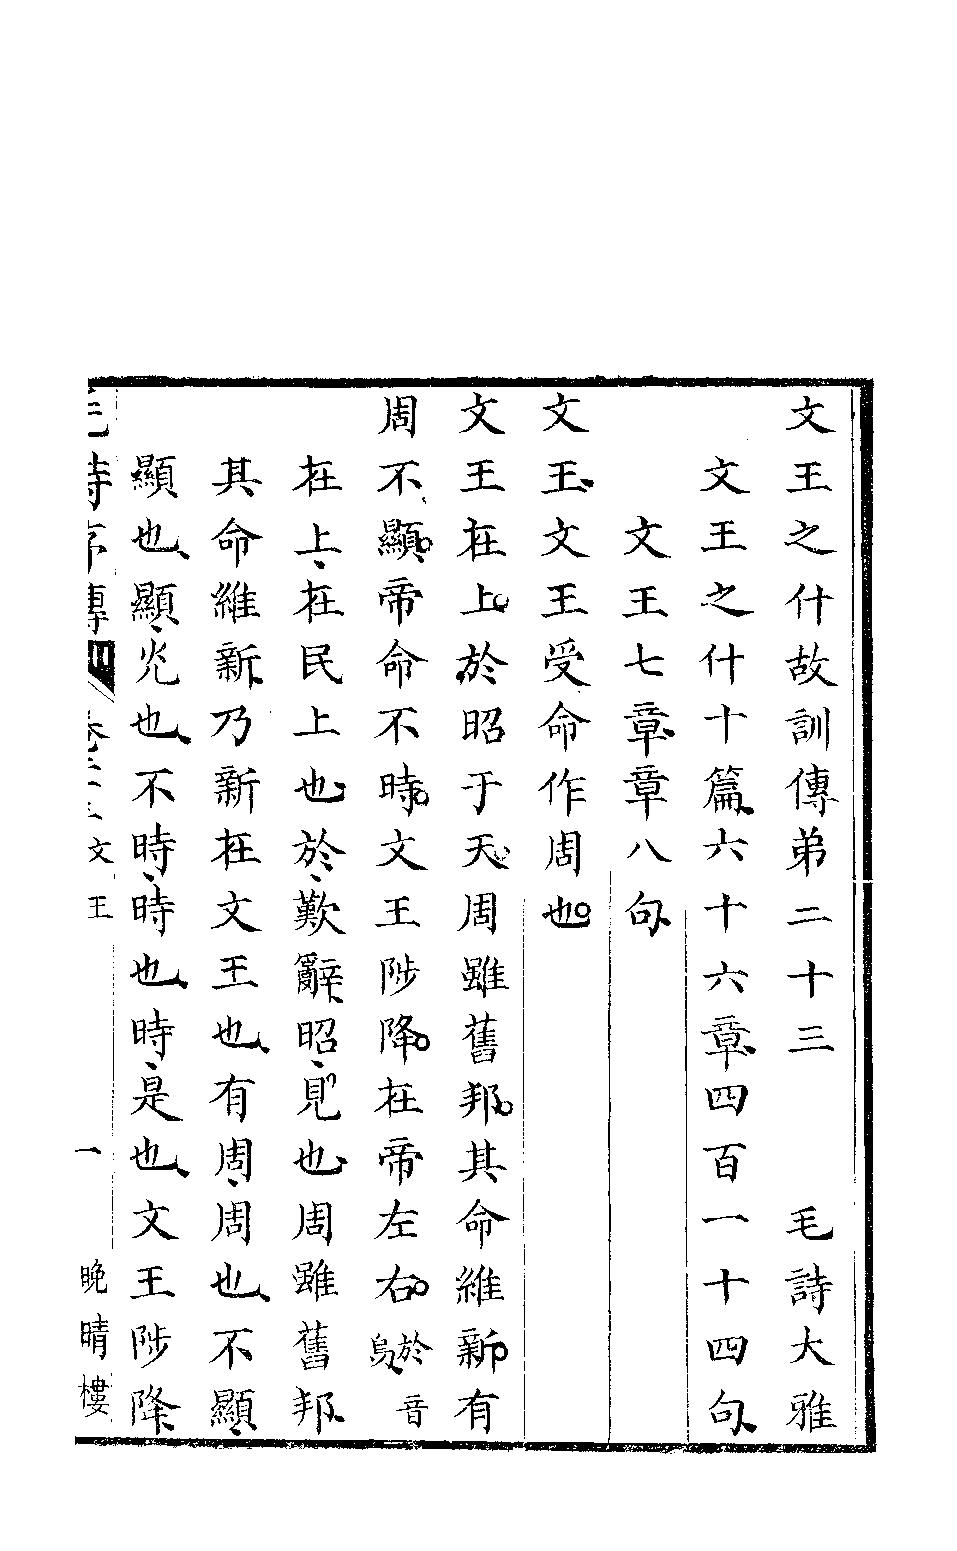 文王之什故訓傳弟二十三　毛詩大雅
文王之什十篇、六十六章、四百一十四句、
文王七章、章八句、
文王、文王受命作周也。
文王在上。於昭于天。周雖舊邦。其命維新。有
周不顯。帝命不時。文王陟降。在帝左右。於音烏、
在上、在民上也、於、歎辭、昭、見也、周雖舊邦、
其命維新、乃新在文王也、有周、周也、不顯、
顯也、顯、光也、不時、時也、時、是也、文王陟降、
文王
一
晚晴樓